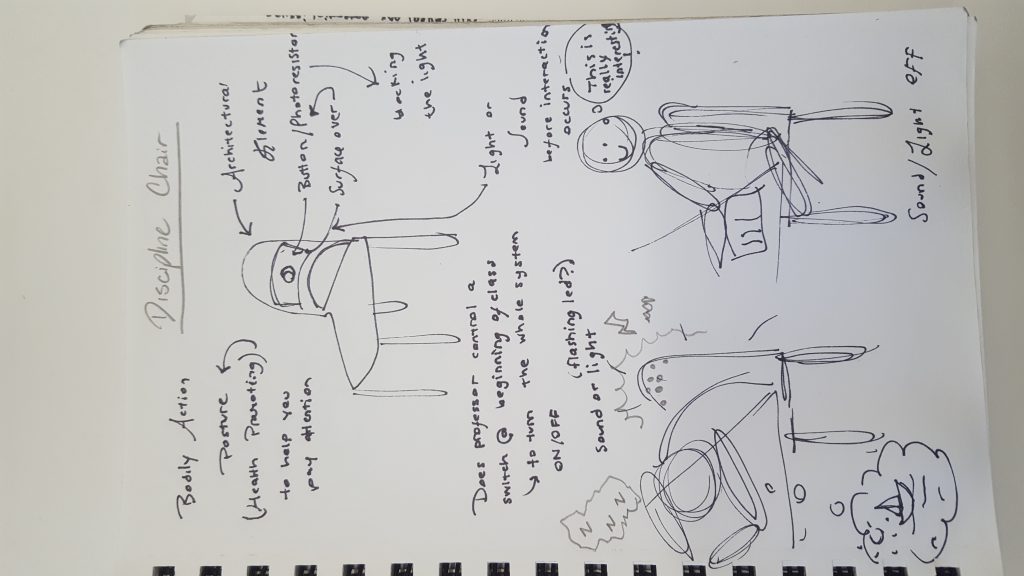 Discipline Chair
Bodily Action
Posture
(Health Promoting)
to help you
pay attention
Architectural
Element
Button/Photoresistor
Surface over
blocking
the light
Light or
Sound
before interaction
occurs
Does professor control a
switch @ beginning of class
to turn the whole system
ON/OFF
(flashing led?)
Sound or light
zzz
This is
really
interesting
Sound/Light OFF